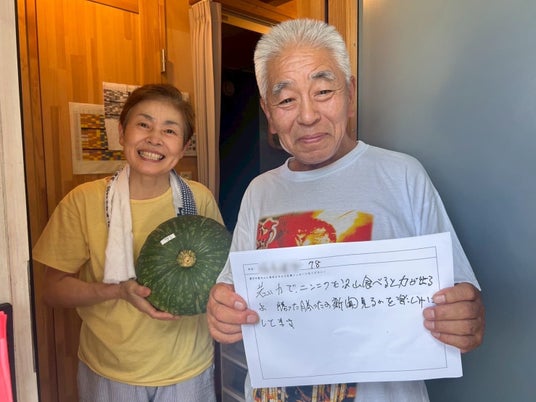 78
若い力で、ニンニクを沢山食べると力が出る
よ 勝った勝ったの新聞見るのを楽しみに
してます